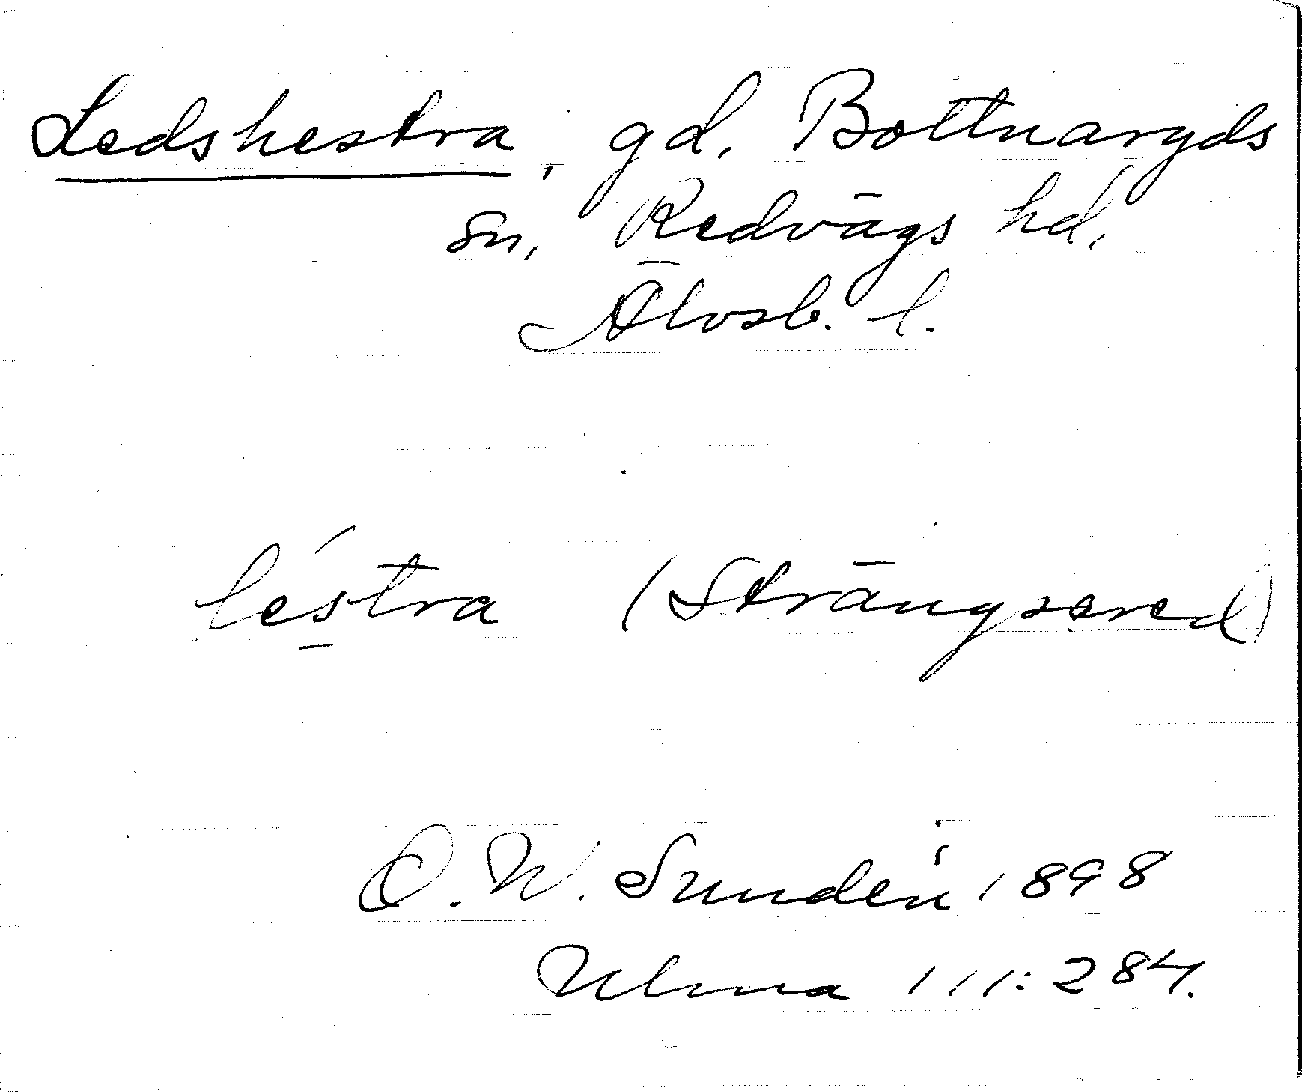 Ledshestra, gd. Bottnaryds
sn, Redvägs hd,
Älvsb. l.
léstra (Strängsered)
O. W. Sundén 1898
Ulma 111:284.